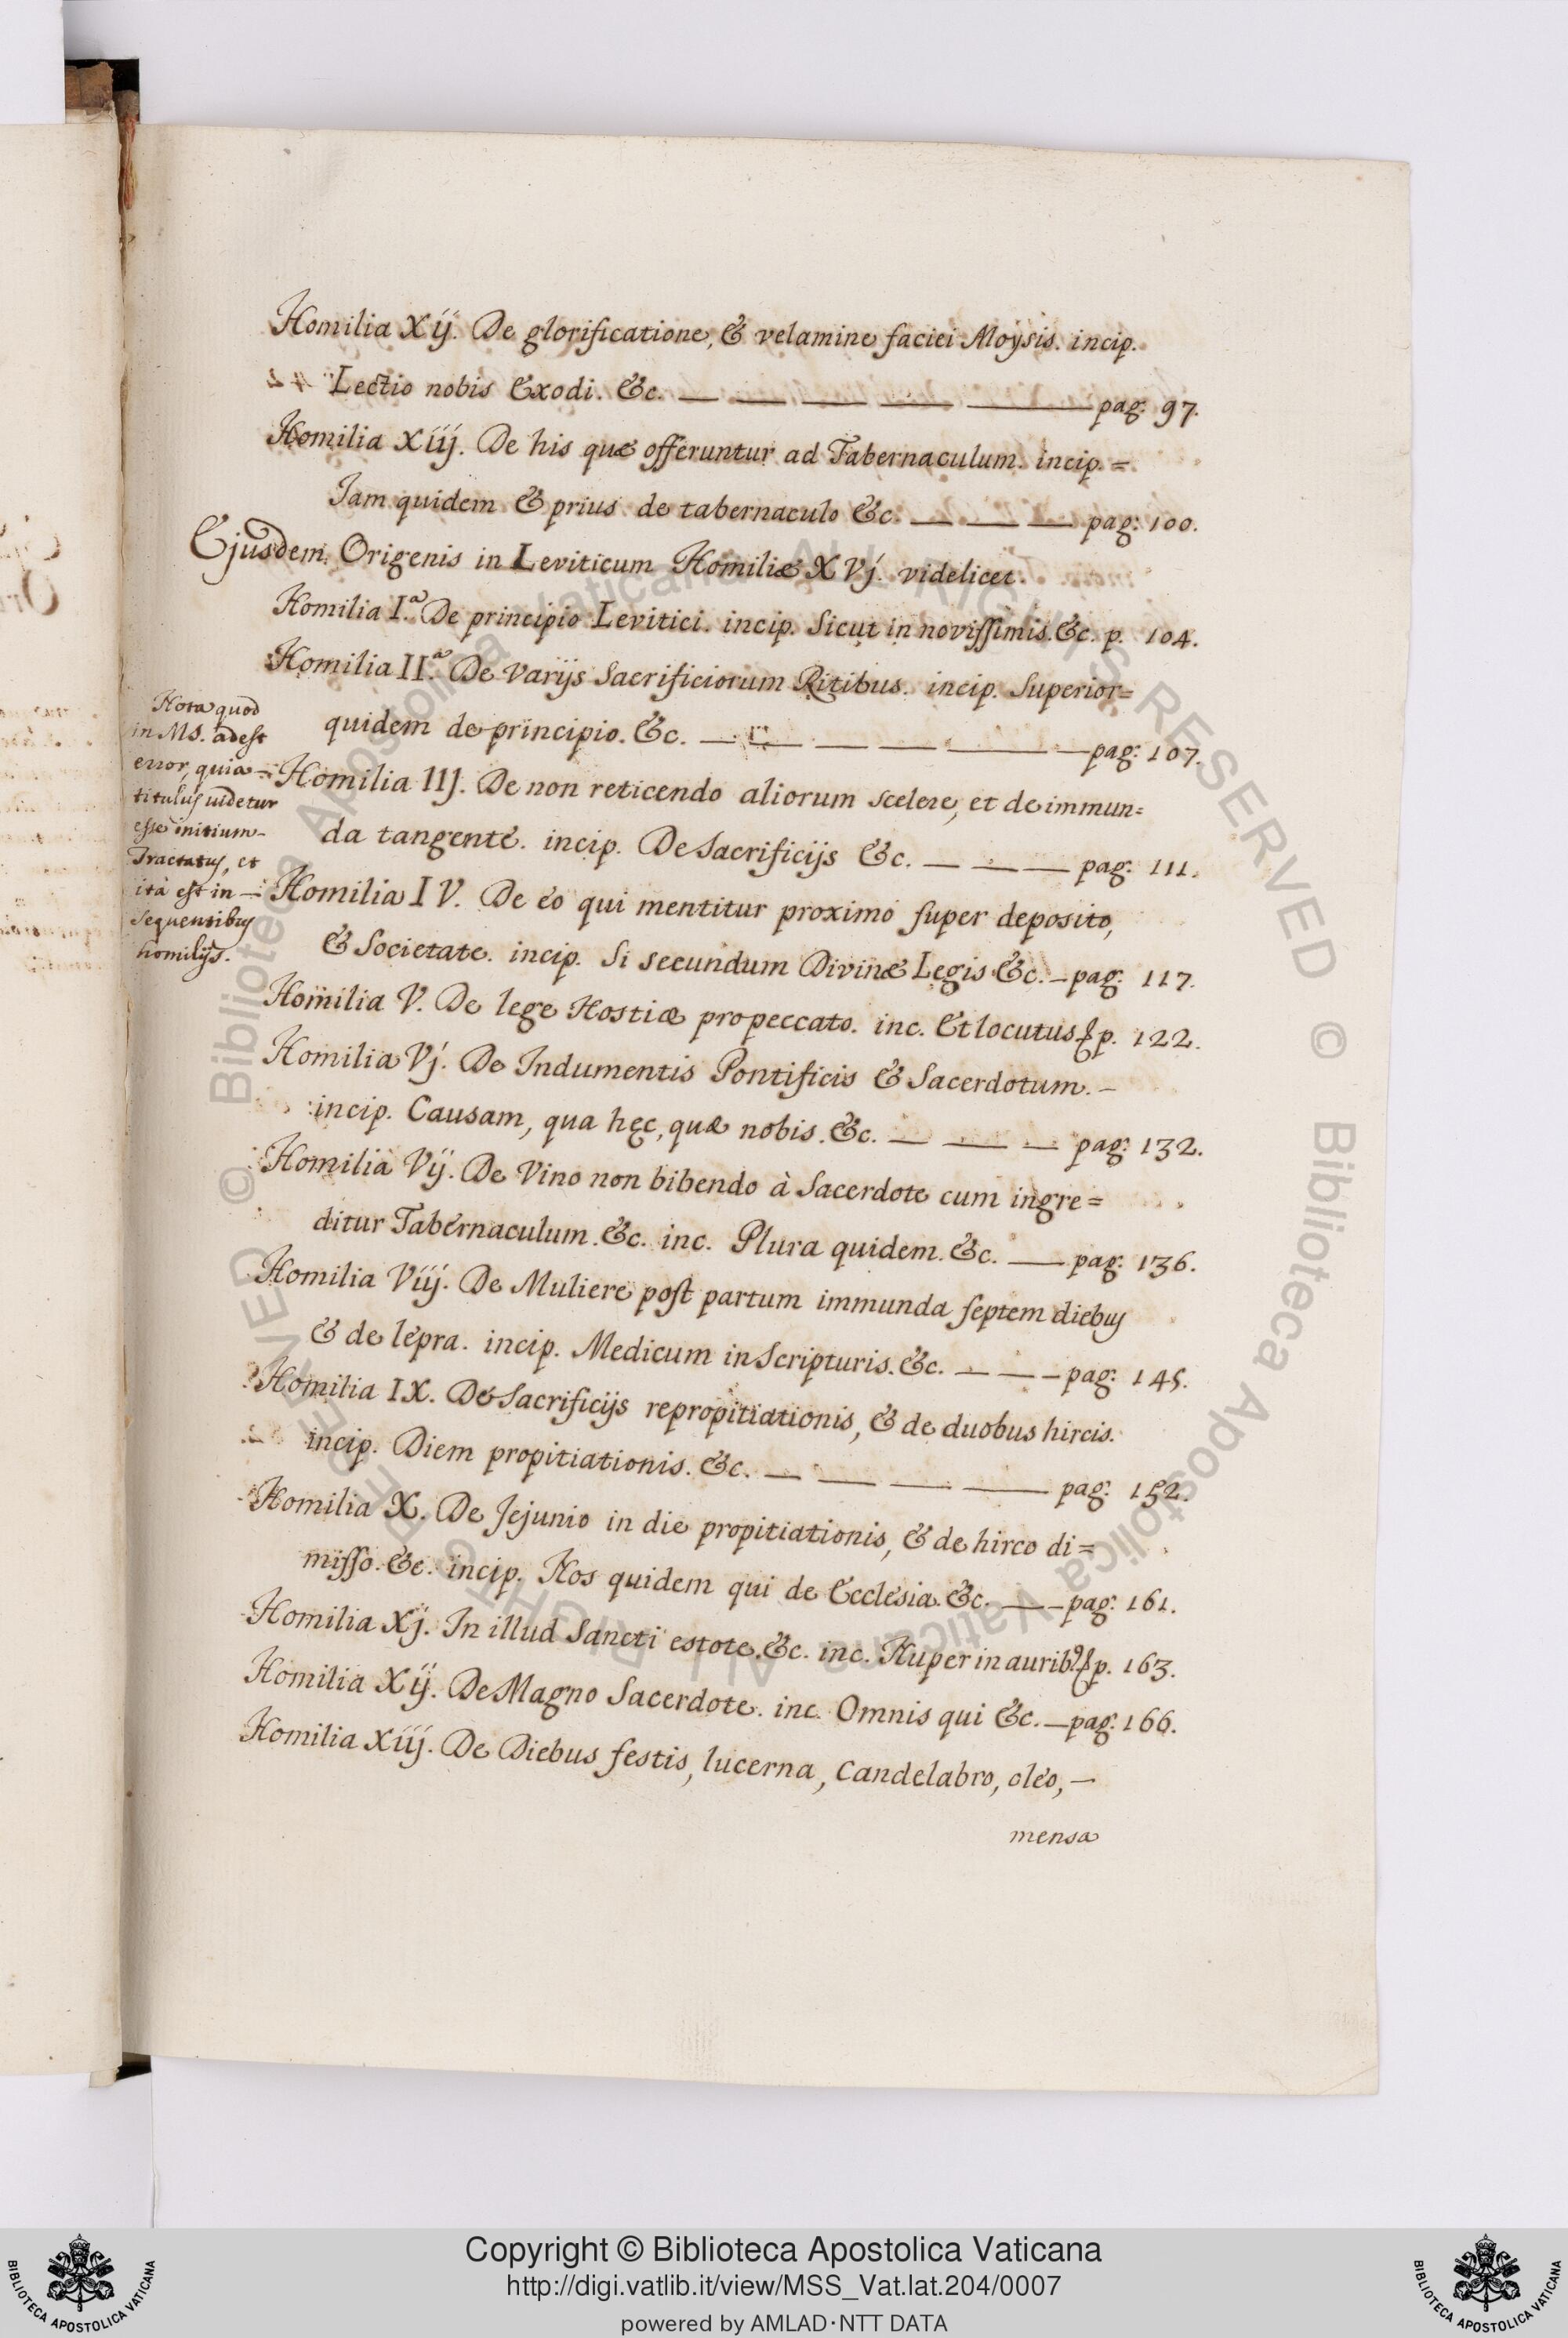 Homilia Xij. De glorificatione, & velamine faciei Moysis. incip.
Lectio nobis Exodi. &c. — — — — — pag. 97.
Homilia Xiij. De his quæ offeruntur ad Tabernaculum. incip. =
Jam quidem & prius de tabernaculo &c. — — — pag: 100.
Ejusdem Origenis in Leviticum Homiliæ XVj. videlicet.
Homilia I.a De principio Levitici. incip. Sicut in novissimis. &c. p. 104.
Homilia II.a De varijs Sacrificiorum Ritibus. incip. Superior=
quidem de principio. &c. — — — — — — pag: 107.
Homilia IIJ. De non reticendo aliorum scelere, et de immun=
da tangente. incip. De Sacrificijs &c. — — — pag: 111.
Homilia IV. De eo qui mentitur proximo super deposito,
& Societate. incip. Si secundum Divinæ Legis &c. – pag: 117.
Homilia V. De lege Hostiæ pro peccato. inc. Et locutus & p. 122.
Homilia Vj. De Indumentis Pontificis & Sacerdotum. –
incip. Causam, qua hęc, quæ nobis. &c. — — — pag: 132.
Homilia Vij. De Vino non bibendo à Sacerdote cum ingre=
ditur Tabernaculum. &c. inc. Plura quidem. &c. — pag: 136.
Homilia Viij. De Muliere post partum immunda septem diebus
& de lepra. incip. Medicum in Scripturis. &c. — — – pag: 145.
Homilia IX. De Sacrificijs repropitiationis, & de duobus hircis.
incip. Diem propitiationis. &c. — — — — pag: 152.
Homilia X. De Jejunio in die propitiationis, & de hirco di=
misso. &c. incip. Nos quidem qui de Ecclesia. &c. — – pag: 161.
Homilia Xj. In illud Sancti estote. &c. inc. Nuper in aurib9 & p. 163.
Homilia Xij. De Magno Sacerdote. inc. Omnis qui &c. – pag: 166.
Homilia Xiij. De Diebus festis, lucerna, Candelabro, oleo, –
mensa
Nota quod
in MS. adest
error, quia =
titulus videtur
esse initium –
Tractatus, et
ità est in –
sequentibus
homilijs.
© Biblioteca Apostolica Vaticana ALL RIGHTS RESERVED © Biblioteca Apostolica Vaticana ALL RIGHTS RESERVED
Copyright © Biblioteca Apostolica Vaticana
http://digi.vatlib.it/view/MSS_Vat.lat.204/0007
powered by AMLAD·NTT DATA
BIBLIOTECA APOSTOLICA VATICANA
BIBLIOTECA APOSTOLICA VATICANA